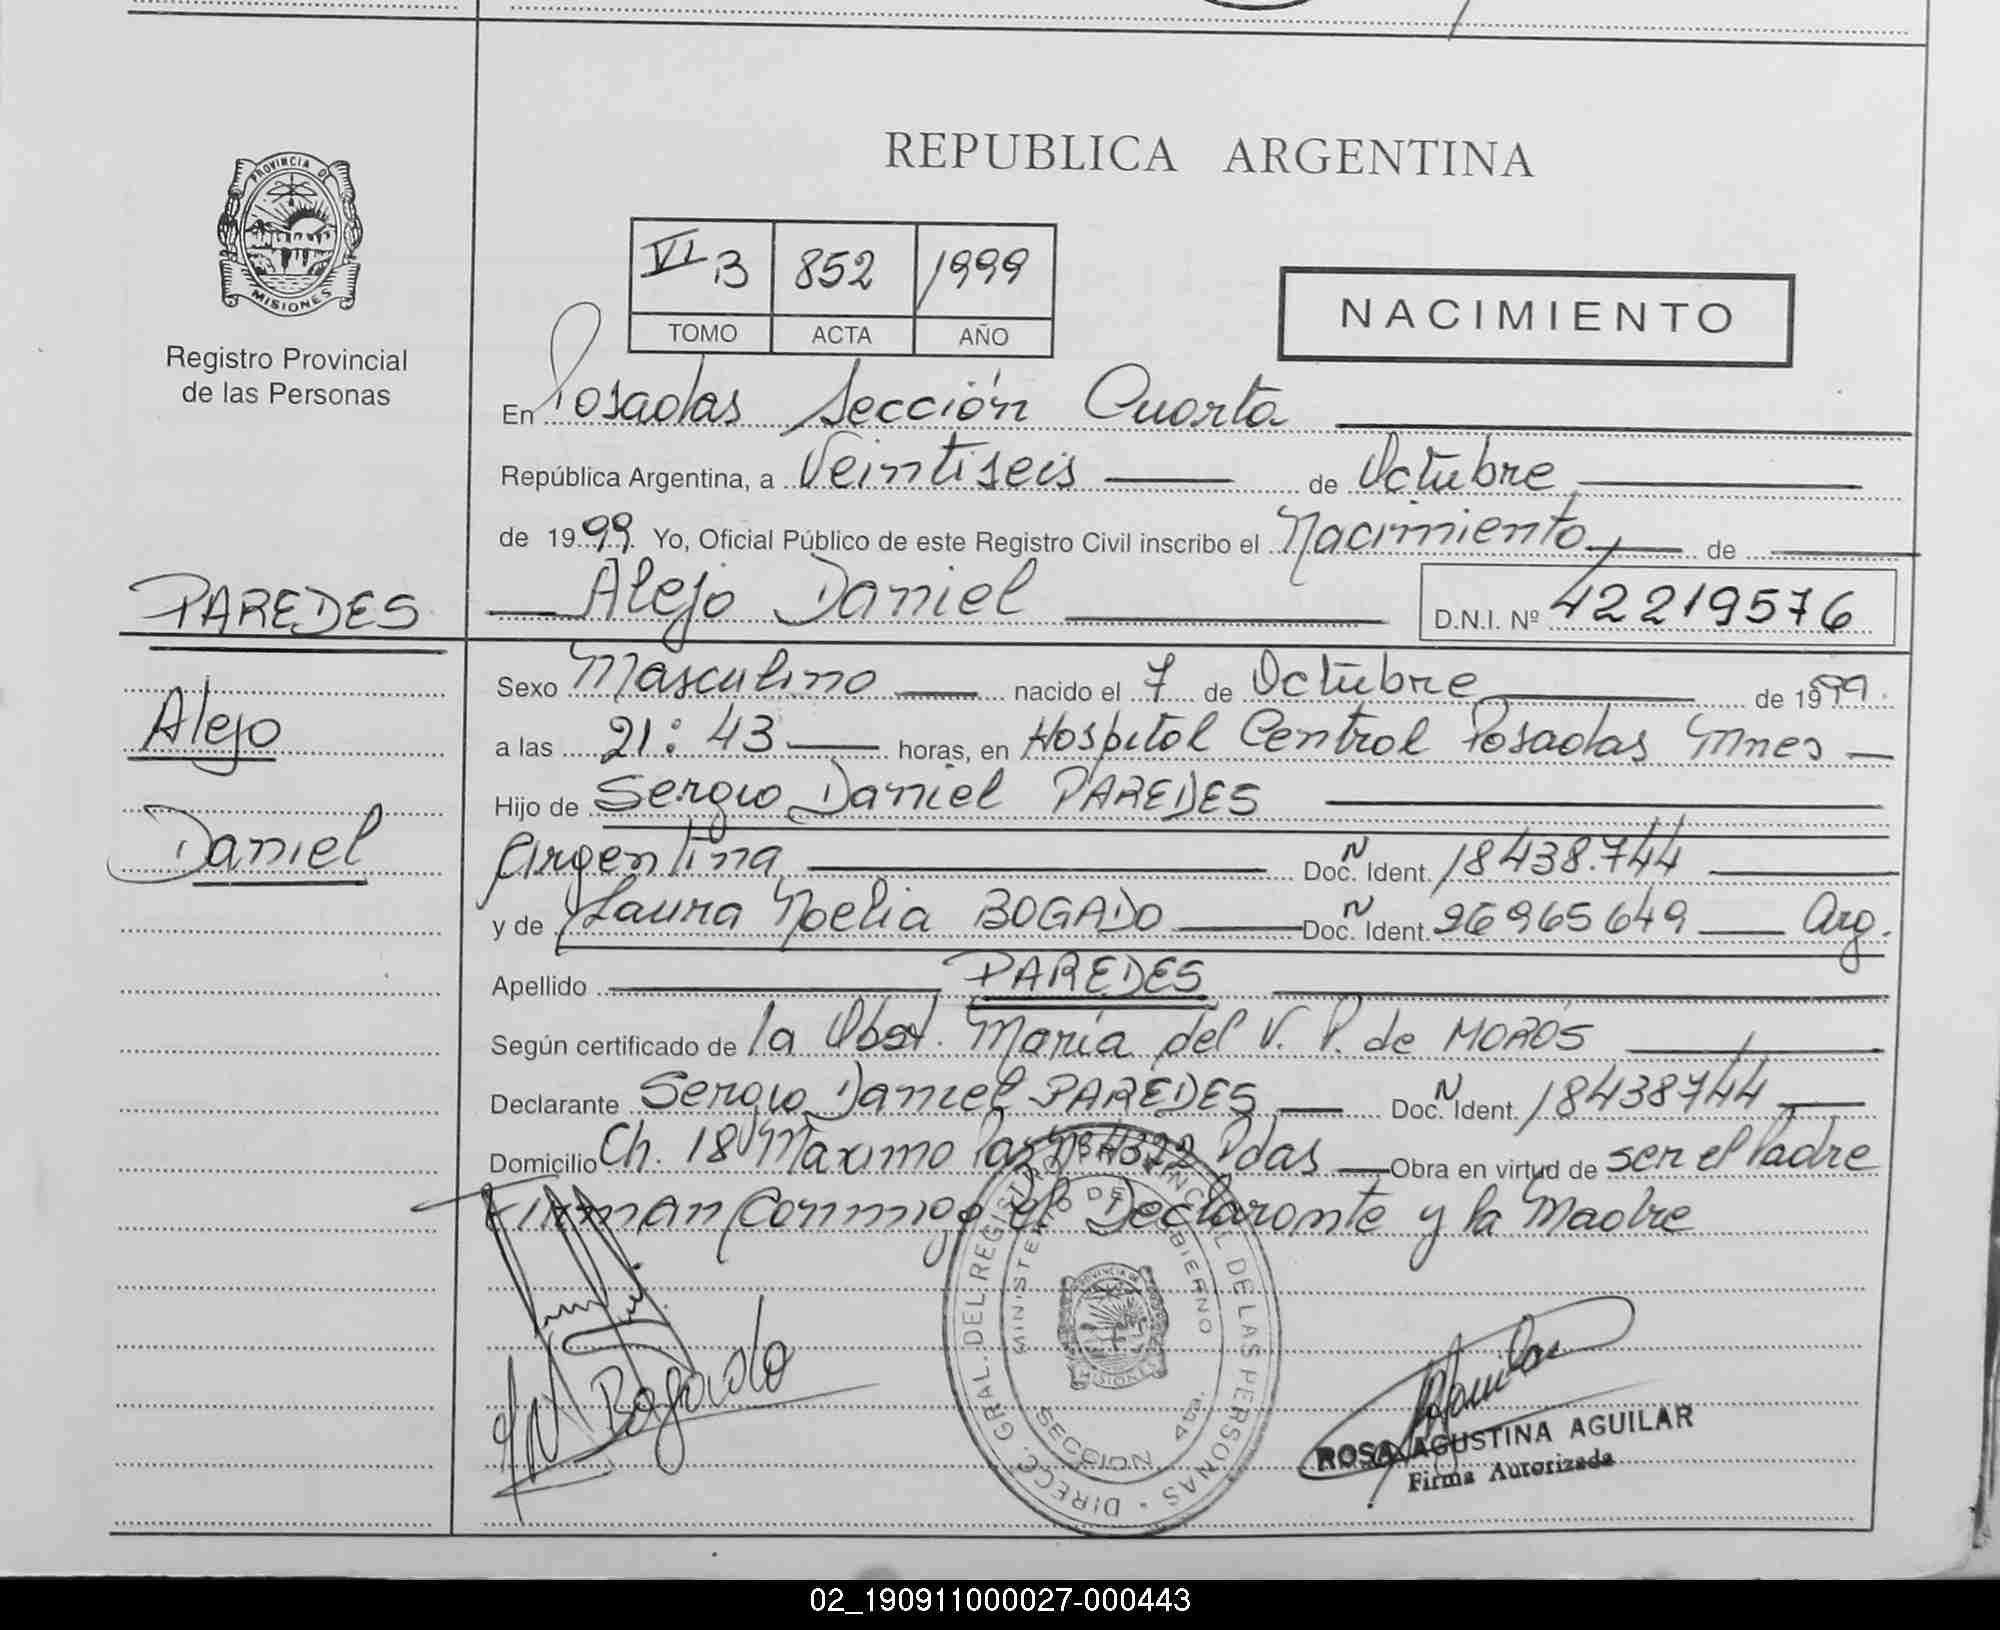 REPUBLICA ARGENTINA
PROVINCIA DE
MISIONES
Registro Provincial
de las Personas
VI B 852 1999
TOMO ACTA AÑO
NACIMIENTO
En Posadas Sección Cuarta
República Argentina, a Veintiseis de Octubre
de 1999. Yo, Oficial Público de este Registro Civil inscribo el Nacimiento de
Alejo Daniel D.N.I. Nº 42219576
PAREDES
Alejo
Daniel
Sexo Masculino nacido el 7 de Octubre de 1999.
a las 21:43 horas, en Hospital Central Posadas Mnes
Hijo de Sergio Daniel PAREDES
Argentina Doc. N Ident. 18438.744
y de Laura Noelia BOGADO Doc. N Ident. 26965649 Arg.
Apellido PAREDES
Según certificado de la Obst. María del V. P. de MOROS
Declarante Sergio Daniel PAREDES Doc. N Ident. 18438744
Domicilio Ch. 181 Maximo Paz Nº 4322 Pdas Obra en virtud de ser el Padre
Firman Conmigo el Declarante y la Madre
DIRECC. GRAL. DEL REGISTRO PROVINCIAL DE LAS PERSONAS
MINISTERIO DE GOBIERNO
PROVINCIA DE
MISIONES
SECCION 4ta.
LN Bogado
R Aguilar
ROSA AGUSTINA AGUILAR
Firma Autorizada
02_190911000027-000443